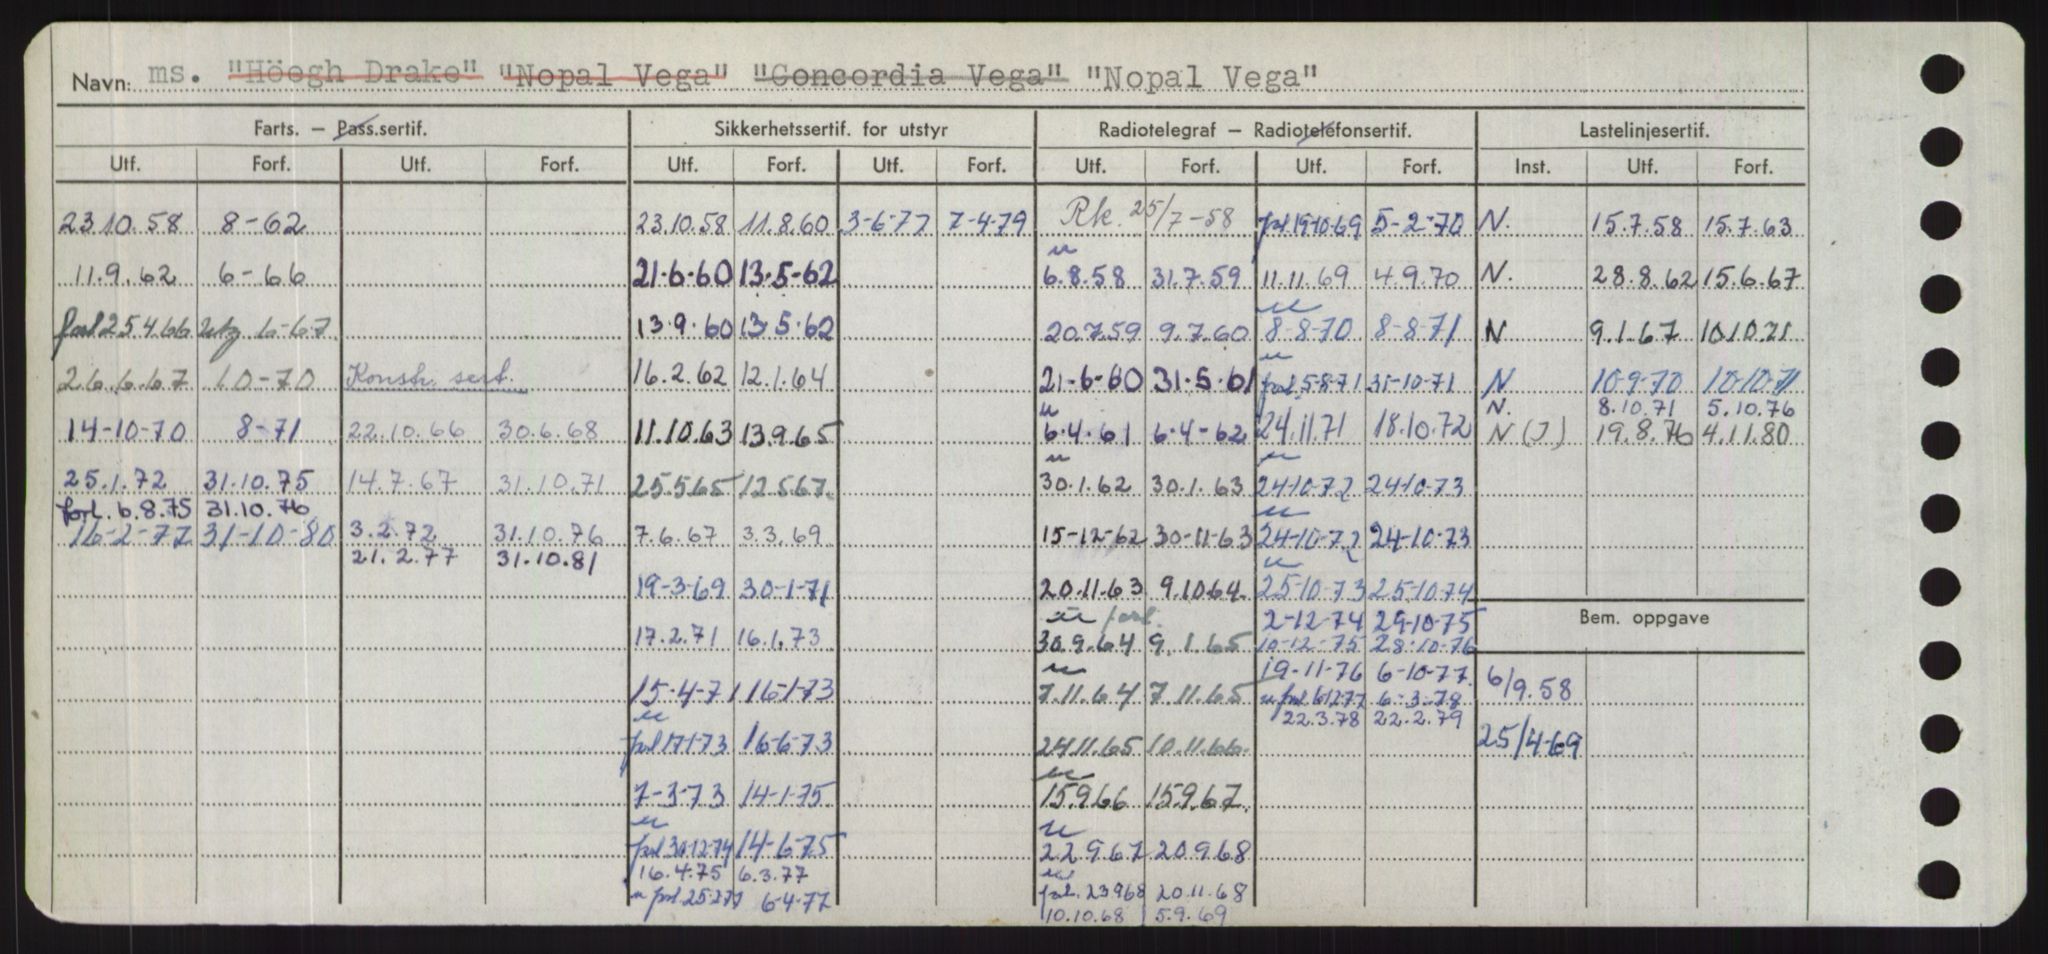 Navn: ms. "Höegh Drake" "Nopal Vega" "Concordia Vega" "Nopal Vega"
Farts. – Pass.sertif. Sikkerhetssertif. for utstyr Radiotelegraf – Radiotelefonsertif. Lastelinjesertif.
Utf. Forf. Utf. Forf. Utf. Forf. Utf. Forf. Utf. Forf. Utf. Forf. Inst. Utf. Forf.
23.10.58 8-62 23.10.58 11.8.60 3-6-77 7-4-79 Rk. 25/7-58 forl. 19-10-69 5-2-70 N. 15.7.58 15.7.63
11.9.62 6-66 21-6-60 13-5-62 6.8.58 31.7.59 11.11.69 4.9.70 N. 28.8.62 15.6.67
forl 25.4.66 utg 6-67 13.9.60 13.5.62 20.7.59 9.7.60 8-8-70 8-8-71 N 9.1.67 10.10.71
26.6.67 10-70 Konstr. sert. 16.2.62 12.1.64 21-6-60 31.5.61 forl. 5-8-71 31-10-71 N 10-9-70 10-10-71
N. 8.10.71 5.10.76
14-10-70 8-71 22.10.66 30.6.68 11.10.63 13.9.65 6.4.61 6-4-62 24.11.71 18.10.72 N (J) 19.8.76 4.11.80
25.1.72 31.10.75 14.7.67 31.10.71 25.5.65 12.5.67 30.1.62 30.1.63 24-10-72 24-10-73
forl. 6.8.75 31.10.76
16-2-77 31-10-80 3.2.72 31.10.76 7.6.67 3.3.69 15-12-62 30-11-63 24-10-72 24-10-73
21.2.77 31.10.81
19-3-69 30-1-71 20.11.63 9.10.64 25-10-73 25-10-74
forl. 2-12-74 29-10-75 Bem. oppgave
17.2.71 16.1.73 30.9.64 9.1.65 10-12-75 28-10-76
19-11-76 6-10-77 6/9.58
15-4-71 16-1-73 7.11.64 7.11.65 forl. 6-12-77 6-3-78
22.3.78 22.2.79
forl 17-1-73 16-6-73 24.11.65 10.11.66 25/4-69
7-3-73 14-1-75 15.9.66 15.9.67
forl 30-12-74 14-6-75 22.9.67 20.9.68
16.4.75 6.3.77
forl. 25-2-77 6-4-77 forl. 23.9.68 20.11.68
10.10.68 5.9.69